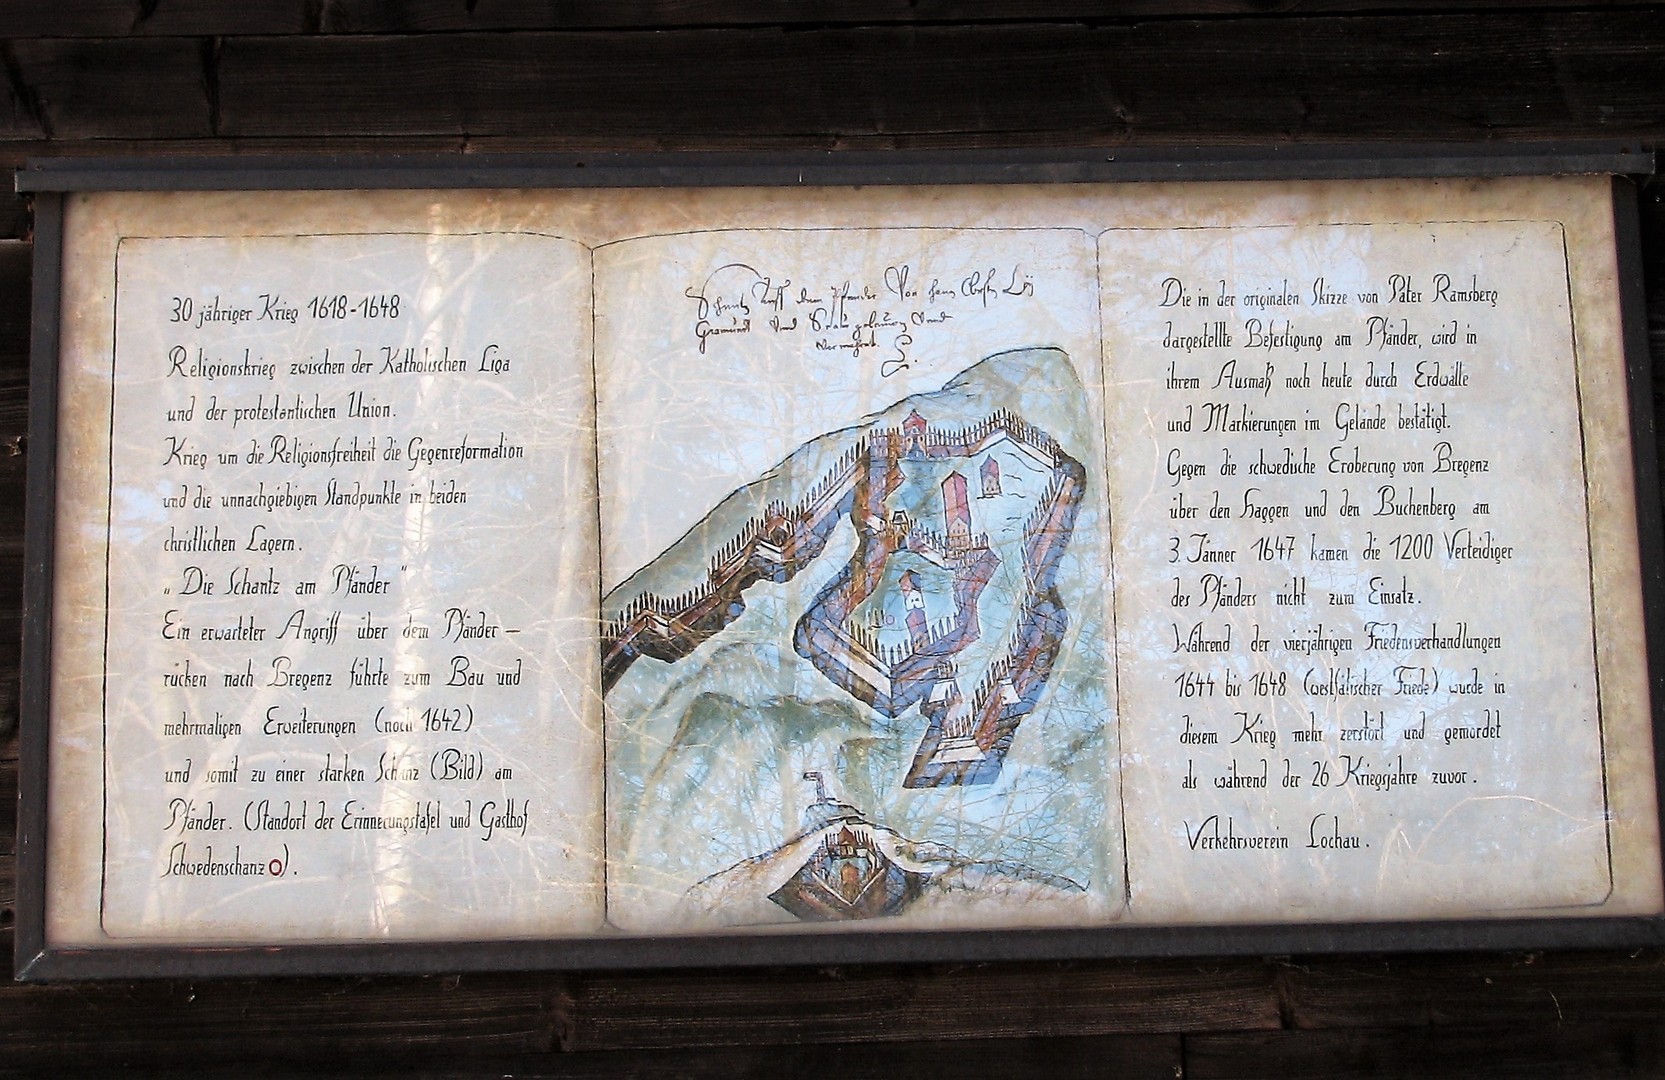 30 jähriger Krieg 1618-1648
Religionskrieg zwischen der Katholischen Liga
und der protestantischen Union.
Krieg um die Religionsfreiheit die Gegenreformation
und die unnachgiebigen Standpunkte in beiden
christlichen Lagern.
„Die Schantz am Pfänder"
Ein erwarteter Angriff über dem Pfänder—
rücken nach Bregenz führte zum Bau und
mehrmaligen Erweiterungen (noch 1642)
und somit zu einer starken Schanz (Bild) am
Pfänder. (Standort der Erinnerungstafel und Gasthof
Schwedenschanz O).
Schantz Auff dem Pfender Von hans
Vnd Vnd
Die in der originalen Skizze von Pater Ramsberg
dargestellte Befestigung am Pfänder, wird in
ihrem Ausmaß noch heute durch Erdwälle
und Markierungen im Gelände bestätigt.
Gegen die schwedische Eroberung von Bregenz
über den Haggen und den Buchenberg am
3. Jänner 1647 kamen die 1200 Verteidiger
des Pfänders nicht zum Einsatz.
Während der vierjährigen Friedensverhandlungen
1644 bis 1648 (westfälischer Friede) wurde in
diesem Krieg mehr zerstört und gemordet
als während der 26 Kriegsjahre zuvor.
Verkehrsverein Lochau.